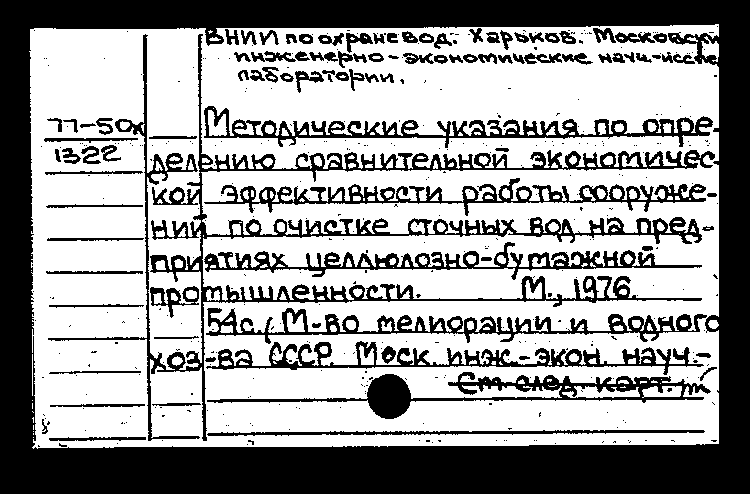 ВНИИ по охране вод. Харьков. Московски
инженерно-экономические науч.-иссле
лаборатории.
77-50к
Методические указания по опре-
1322
делению сравнительной экономичес-
кой эффективности работы сооруже-
ний по очистке сточных вод на пред-
приятиях целлюлозно-бумажной
промышленности. М., 1976.
54с. (М-во мелиорации и водного
хоз-ва СССР. Моск. инж.-экон. науч.-
См след. карт.